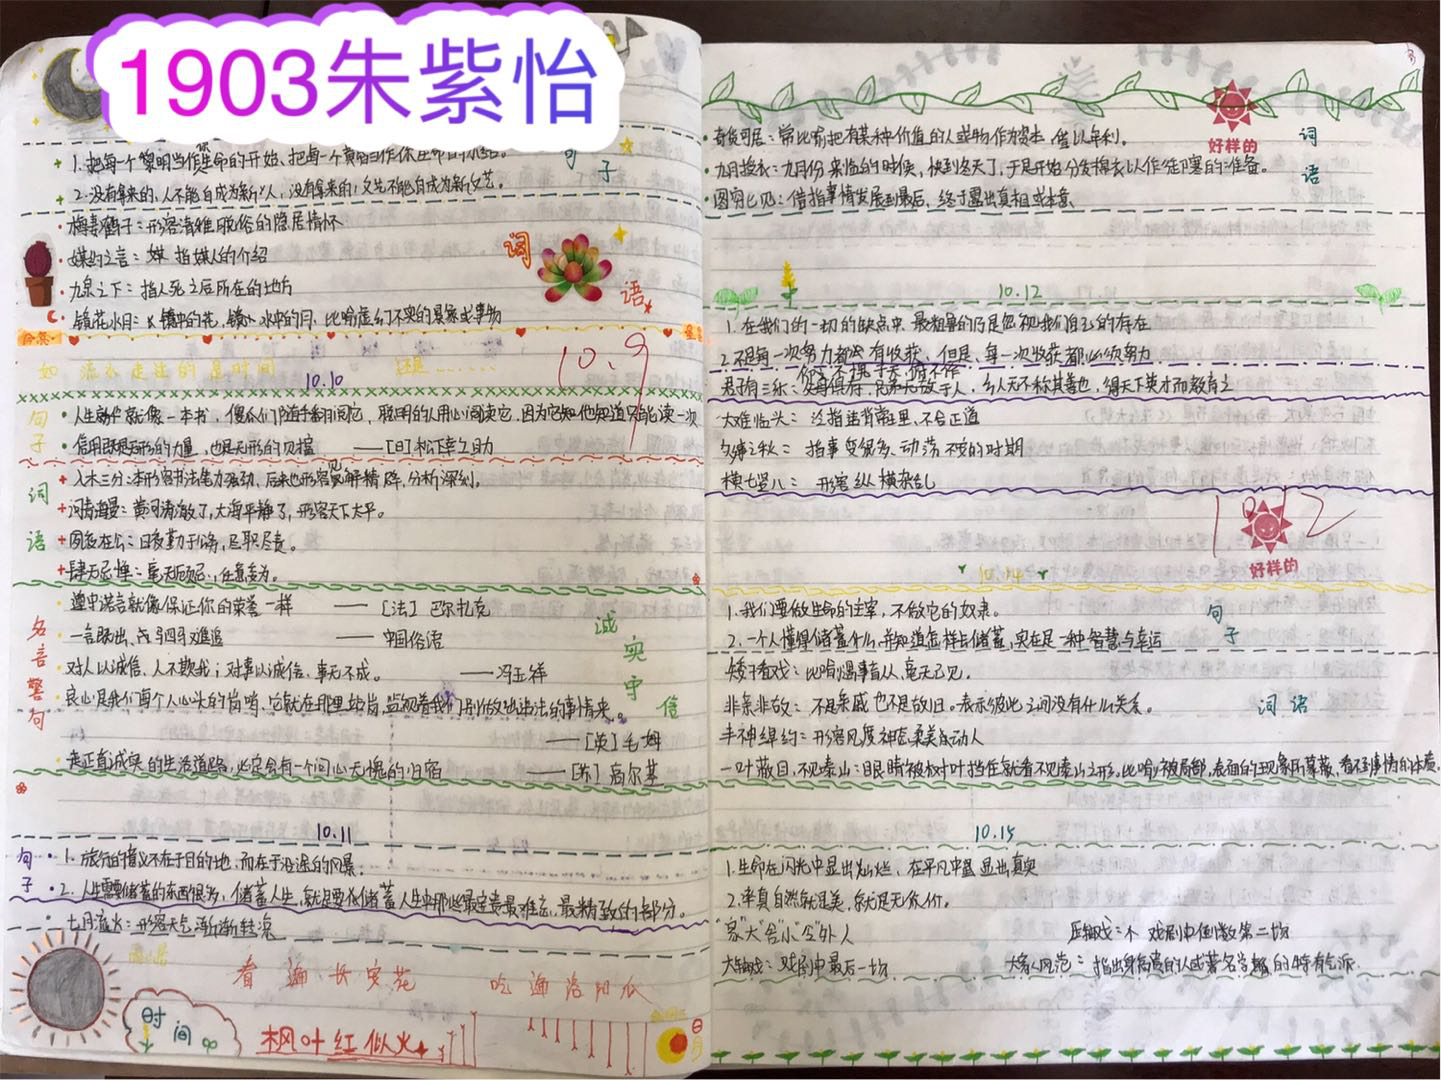 1903朱紫怡
1.把每一个黎明当作生命的开始、把每一个黄昏当作你生命的小结。
句子
2.没有拿来的,人不能自成为新人,没有拿来的,文艺不能自成为新文艺。
梅妻鹤子:形容清雅脱俗的隐居情怀
媒妁之言:媒 指媒人的介绍
词语
九泉之下:指人死之后所在的地方
镜花水月:镜中的花,水中的月.比喻虚幻不实的景象或事物
10.9
如 流水走注的是时间 还是……
10.10
句子
人生就像一本书,傻瓜们随手翻阅它,聪明的人用心阅读它,因为它知他知道只能读一次
信用既是无形的力量,也是无形的财富 ——[日]松下幸之助
词语
入木三分:本形容书法笔力强劲,后来也形容见解精辟,分析深刻。
河清海晏:黄河清澈了,大海平静了,形容天下太平。
夙夜在公:日夜勤于公务,尽职尽责。
肆无忌惮:毫无顾忌,任意妄为。
名言警句
遵守诺言就像保证你的荣誉一样 ——[法]巴尔扎克
一言既出,驷马难追 ——中国俗语
诚实守信
对人以诚信,人不欺我;对事以诚信,事无不成。 ——冯玉祥
良心是我们每个人心头的岗哨,它就在那里站岗,监视着我们别做出违法的事情来。
——[英]毛姆
走正直诚实的生活道路,必定会有一个问心无愧的归宿 ——[苏]高尔基
10.11
句子
1.旅行的意义不在于目的地,而在于沿途的风景.
2.人生需要储蓄的东西很多,储蓄人生,就是要储蓄人生中那些最宝贵最难忘,最精致的部分。
七月流火:形容天气渐渐转凉
看遍长安花 吃遍洛阳瓜
时间
枫叶红似火
奇货可居:常比喻把有某种价值的人或物作为资本,借以牟利。
好样的
词语
九月授衣:九月份来临的时候,快到冬天了,于是开始分发棉衣以作御寒的准备。
图穷匕见:借指事情发展到最后,终于露出真相或本意
10.12
1.在我们的一切的缺点中,最粗暴的乃是忽视我们自己的存在
2.不是每一次努力都会有收获,但是,每一次收获都必须努力
君子有三乐:父母俱存,兄弟无故,仰不愧于天,俯不怍于人,得天下英才而教育之
大难临头:
多事之秋:指事变很多、动荡不安的时期
横七竖八:形容纵横杂乱
10.12
好样的
10.14
1.我们要做生命的主宰,不做它的奴隶。
句子
2.一个人懂得储蓄什么,并知道怎样去储蓄,实在是一种智慧与幸运
矮子看戏:比喻遇事盲从,毫无己见。
非亲非故:不是亲戚也不是故旧。表示彼此之间没有什么关系。
词语
丰神绰约:形容风度神态柔美动人
一叶蔽目,不见泰山:眼睛被树叶挡住就看不见泰山之形。比喻被局部、表面的现象所蒙蔽,看不到事情的本质.
10.15
1.生命在闪光中显出灿烂,在平凡中显出真实
2.率真自然就是美,就是无价。
“家”大“舍”小“令”外人
压轴戏:戏剧中倒数第二场
大轴戏:戏剧中最后一场
大家风范:指出身高贵的人或著名学者的特有气派.